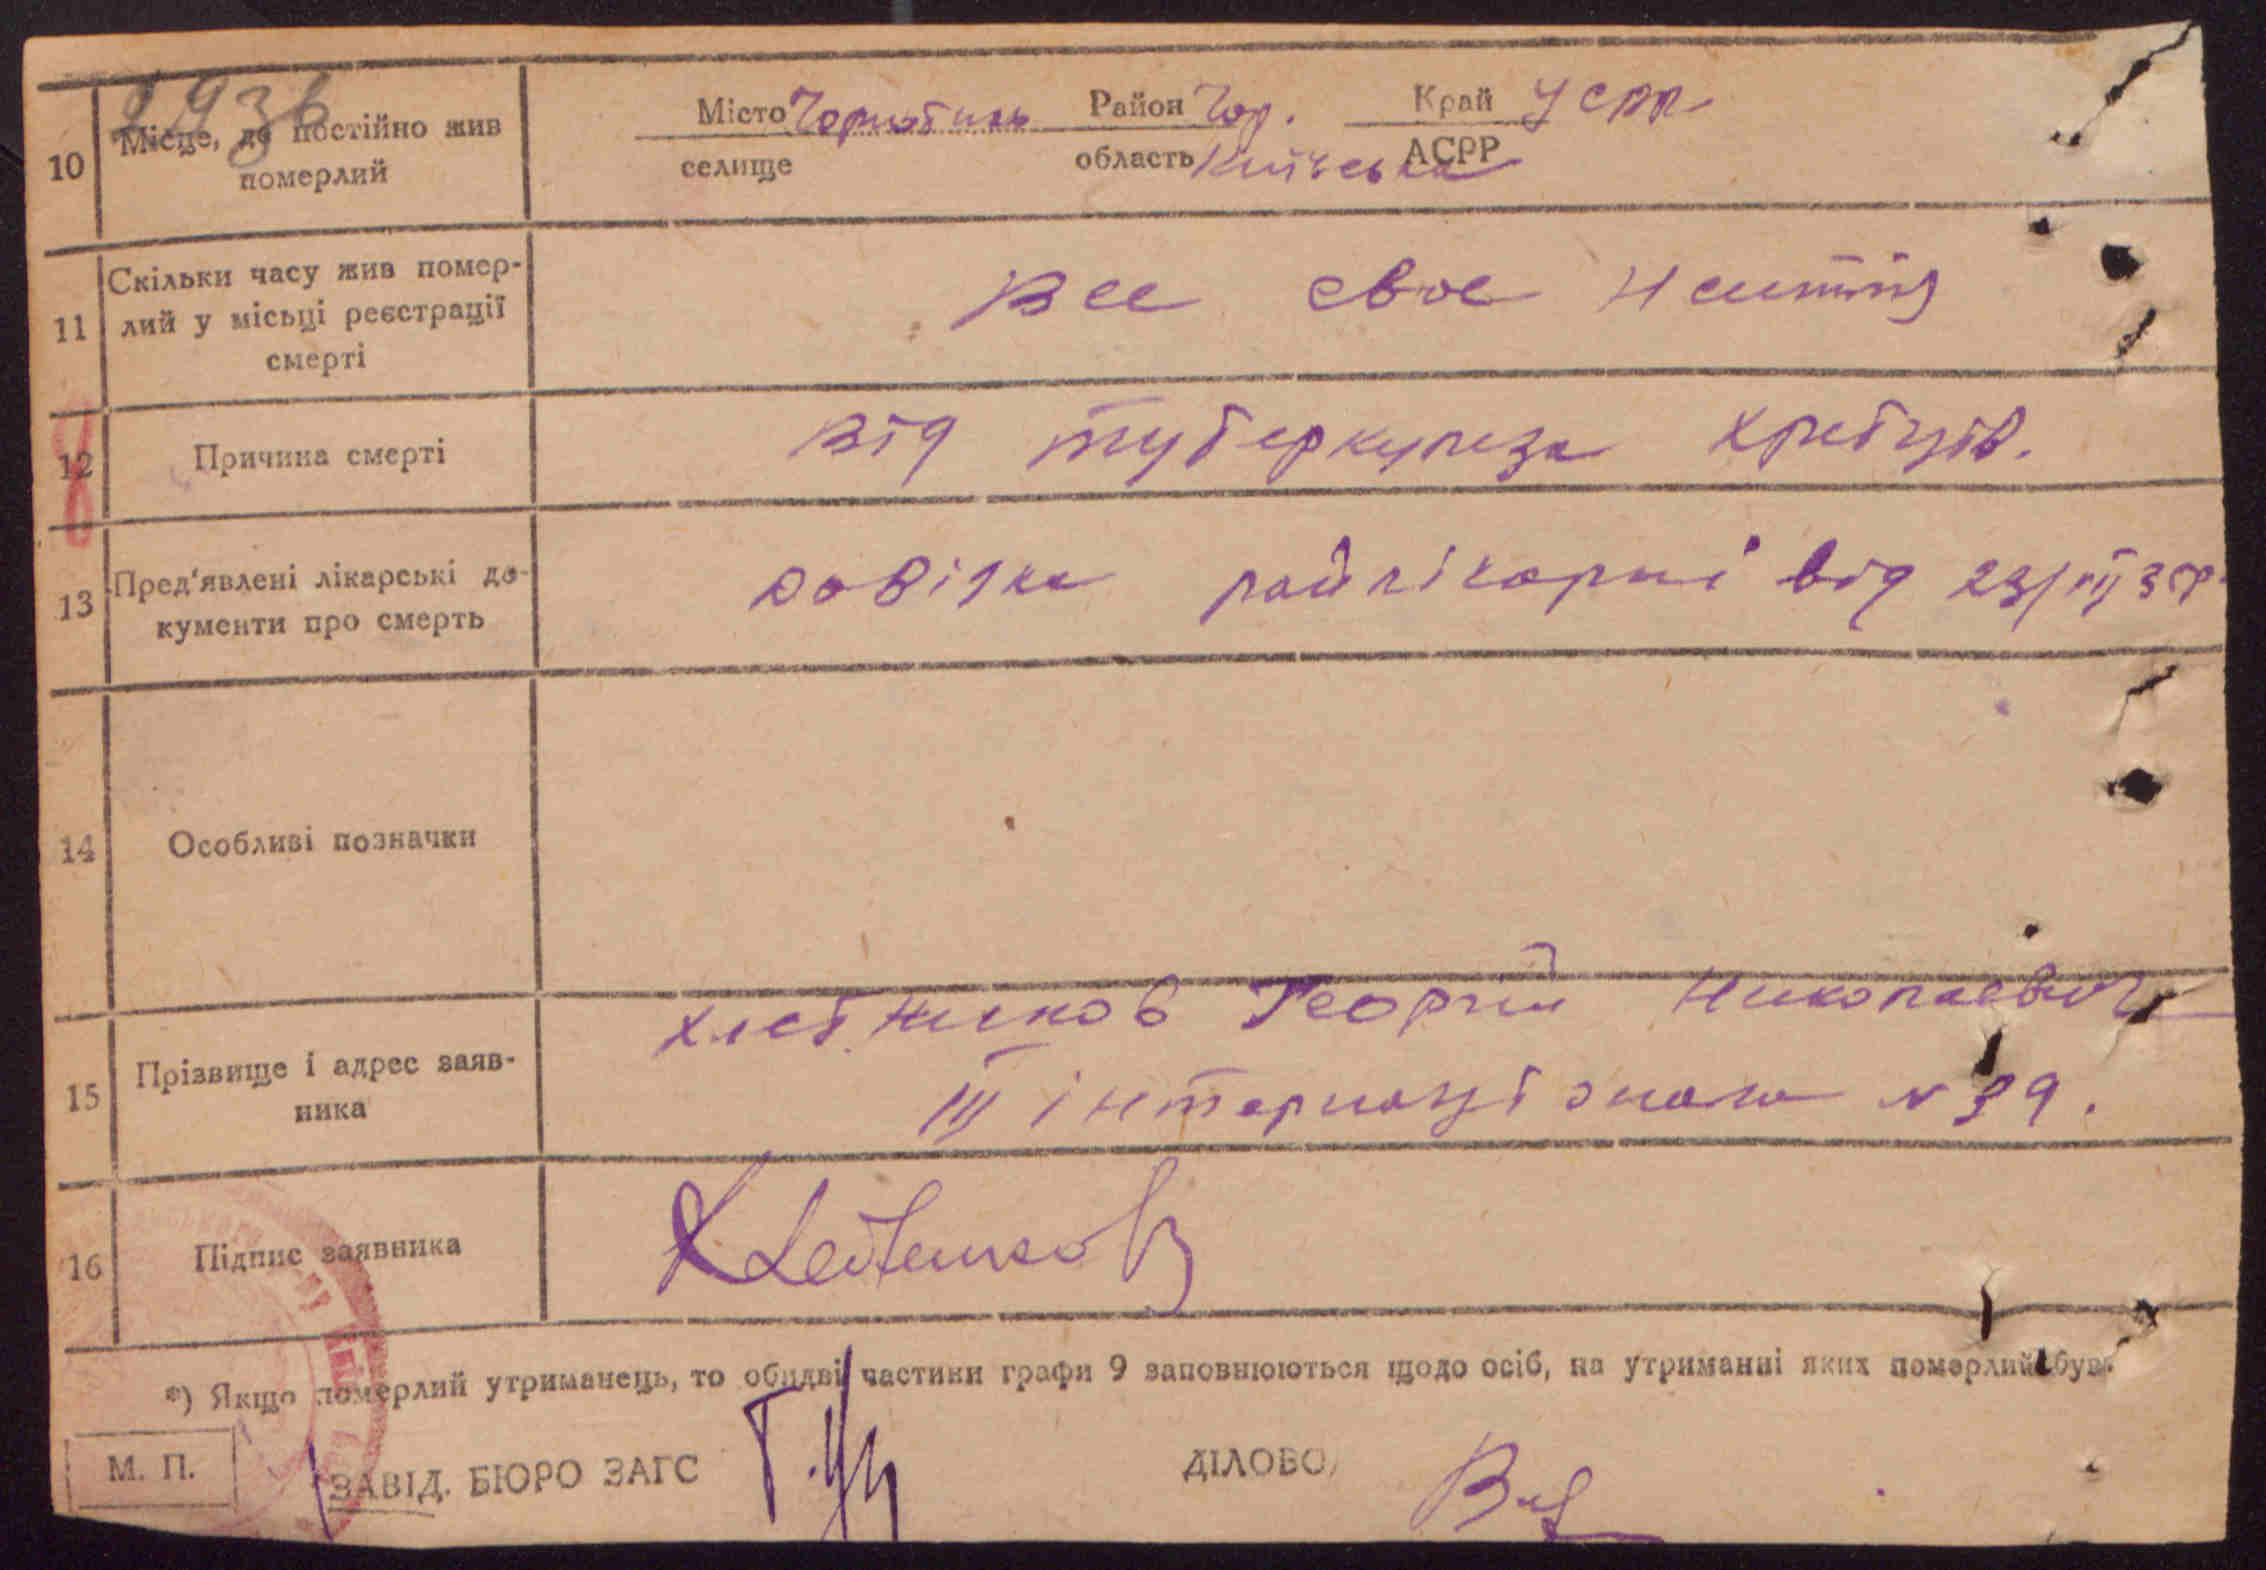 193
10 Місце, де постійно жив померлий
Місто Чорнобиль Район Чор. Край УСРР
селище область Київська АСРР
11 Скільки часу жив помер-
лий у місьці реєстрації
смерті
все свое
12 Причина смерті
від туберкулеза хребців.
13 Пред'явлені лікарські до-
кументи про смерть
довідка райлікарні від 23/VII 3
14 Особливі позначки
15 Прізвище і адрес заяв-
ника
Хлебников Георгій Николаевич
III інтернаціонала № 39.
16 Підпис заявника
Хлебников
*) Якщо померлий утриманець, то обидві частини графи 9 заповнюються щодо осіб, на утриманні яких померлий був.
М. П.
ЗАВІД. БЮРО ЗАГС
ДІЛОВО